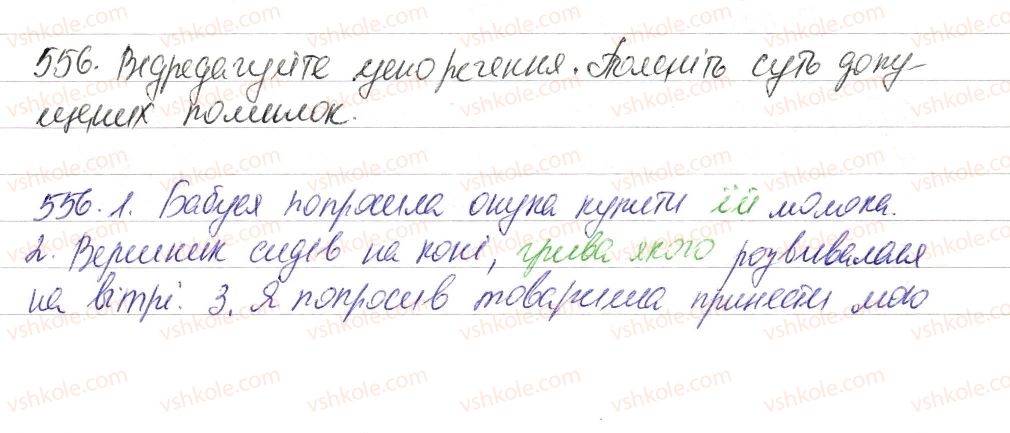 556. Відредагуйте речення. Поясніть суть допу-
щених помилок.
556. 1. Бабуся попросила онука купити їй молока.
2. Вершник сидів на коні, грива якого розвивалася
на вітрі. 3. Я попросив товариша принести мою